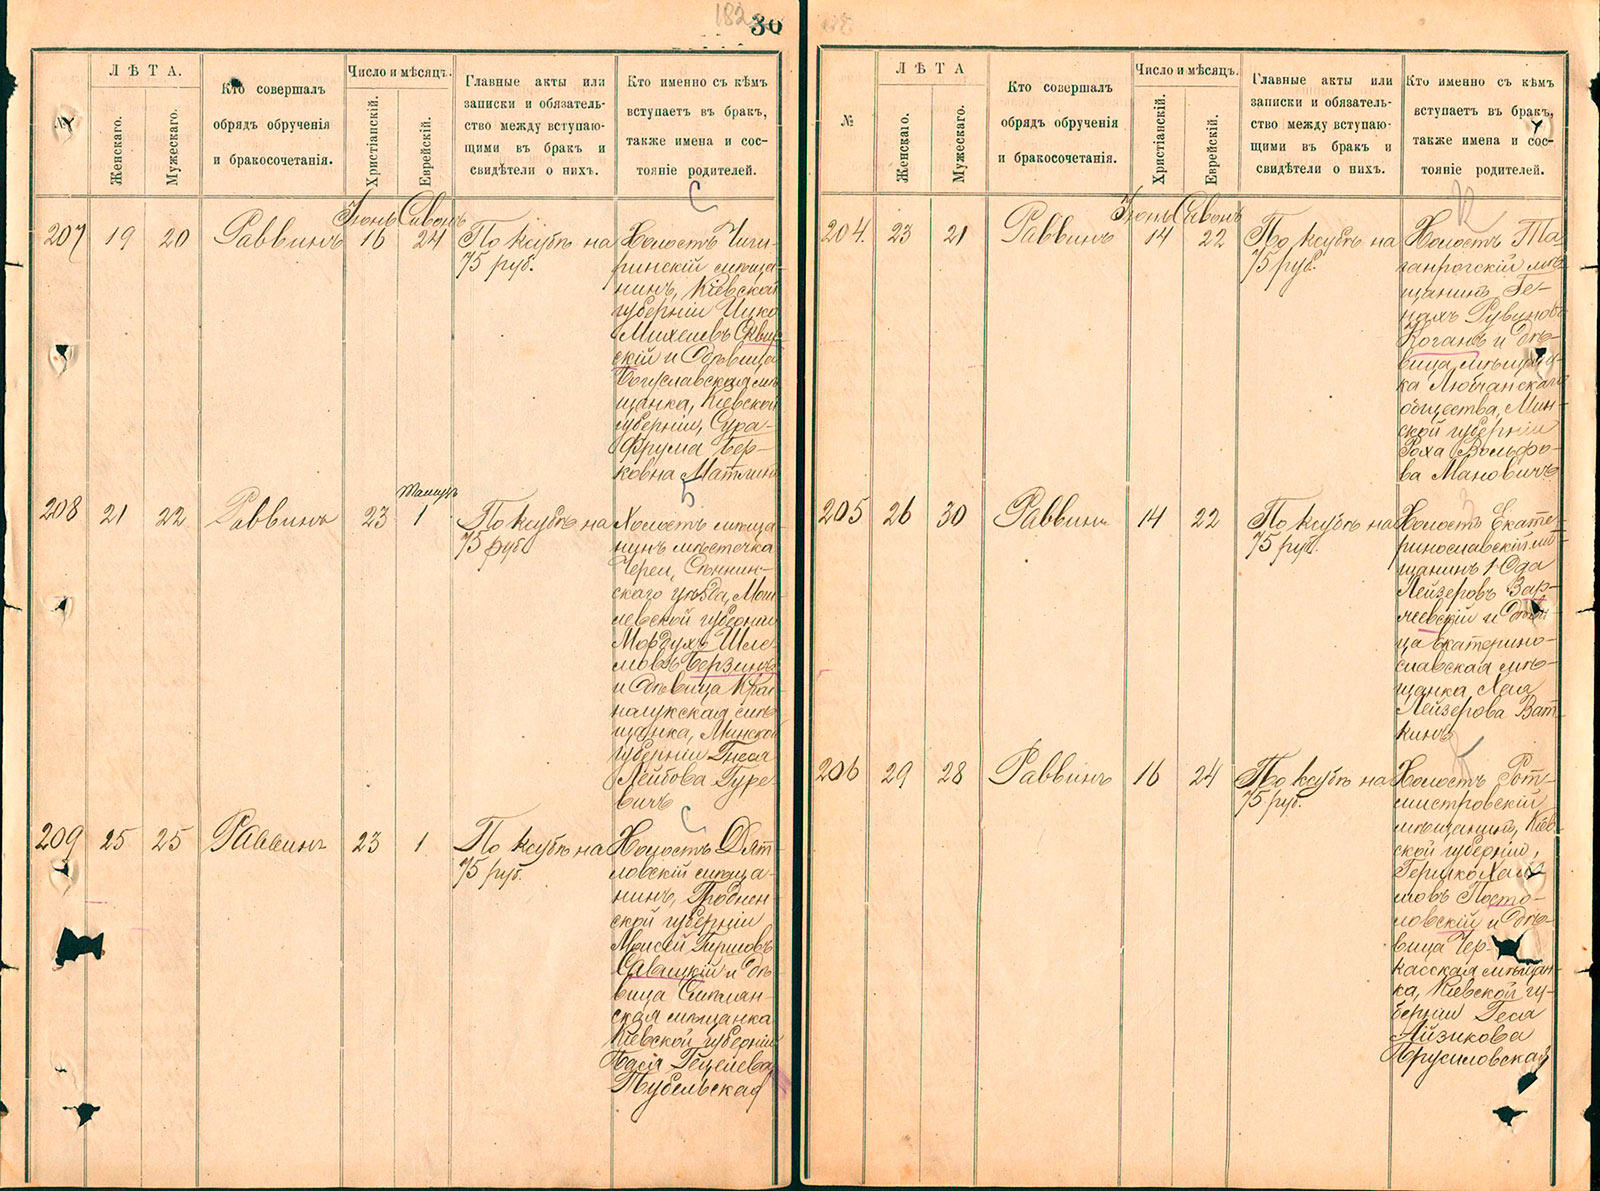 182
30
№
ЛѢТА.
Женскаго.
Мужескаго.
Кто совершалъ
обрядъ обрученія
и бракосочетанія.
Число и мѣсяцъ.
Христіанскій.
Еврейскій.
Главные акты или
записки и обязатель-
ство между вступаю-
щими въ бракъ и
свидѣтели о нихъ.
Кто именно съ кѣмъ
вступаетъ въ бракъ,
также имена и сос-
тояніе родителей.
С
Іюнь Сивонъ
207 19 20 Раввинъ 16 24 По ксубѣ на
75 руб.
Холостъ Чиги-
ринскій мѣща-
нинъ, Кіевской
губерніи Ицко
Михелевъ Сквир-
скій и дѣвица
Богуславская мѣ-
щанка, Кіевской
губерніи, Сура-
Фрума Бер-
ковна
Б
Тамузъ
208 21 22 Раввинъ 23 1 По ксубѣ на
75 руб.
Холостъ мѣща-
нинъ мѣстечка
Череи, Сѣннин-
скаго уѣзда, Моги-
левской губерніи
Мордухъ Шле-
мовъ Берзинъ
и дѣвица
щанка, Минской
губерніи Гнеся
Лейбова Гуре-
вичъ
С
209 25 25 Раввинъ 23 1 По ксубѣ на
75 руб.
Холостъ Дят-
ловскій мѣща-
нинъ, Гроднен-
ской губерніи
Мойсей Гиршовъ
Савицкій и дѣ-
вица Смѣлян-
ская мѣщанка
Кіевской губерніи
Бася
Тубельская
№
ЛѢТА
Женскаго.
Мужескаго.
Кто совершалъ
обрядъ обрученія
и бракосочетанія.
Число и мѣсяцъ.
Христіанскій.
Еврейскій.
Главные акты или
записки и обязатель-
ство между вступаю-
щими въ бракъ и
свидѣтели о нихъ.
Кто именно съ кѣмъ
вступаетъ въ бракъ,
также имена и сос-
тояніе родителей.
К
Іюнь Сивонъ
204. 23 21 Раввинъ 14 22 По ксубѣ на
75 руб.
Холостъ Та-
ганрогскій мѣ-
щанинъ Ге-
нахъ Рувиновъ
Коганъ и дѣ-
вица, мѣщан-
ка Любчанскаго
общества, Мин-
ской губерніи
Роха Вольфо-
ва Мановичъ
З
205 26 30 Раввинъ 14 22 По ксубѣ на
75 руб.
Холостъ Екате-
ринославскій мѣ-
щанинъ Іода
Лейзеровъ Зар-
чевскій и дѣви-
ца Екатерино-
славская мѣ-
щанка, Лея
Лейзерова Ват-
кинъ
206 29 28 Раввинъ 16 24 По ксубѣ на
75 руб.
Холостъ Рот-
мистровскій
мѣщанинъ, Кіев-
ской губерніи,
Гершко Хаи-
мовъ Посто-
ловскій и дѣ-
вица Чер-
касская мѣщан-
ка, Кіевской гу-
берніи Геся
Айзикова
Брусиловская